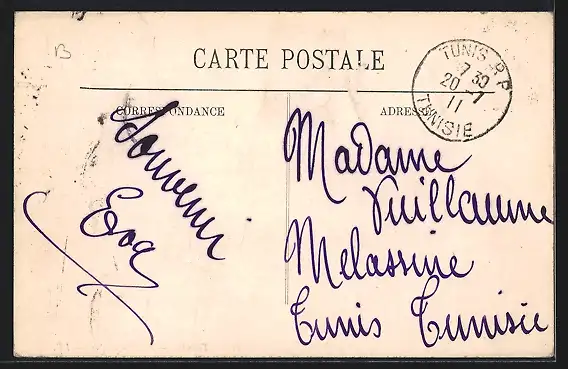 B
CARTE POSTALE
TUNIS R.P
7 30
20 -7
11
TUNISIE
CORRESPONDANCE
ADRESSE
Souvenir
Eva
Madame
Vuillaume
Melassine
Tunis Tunisie